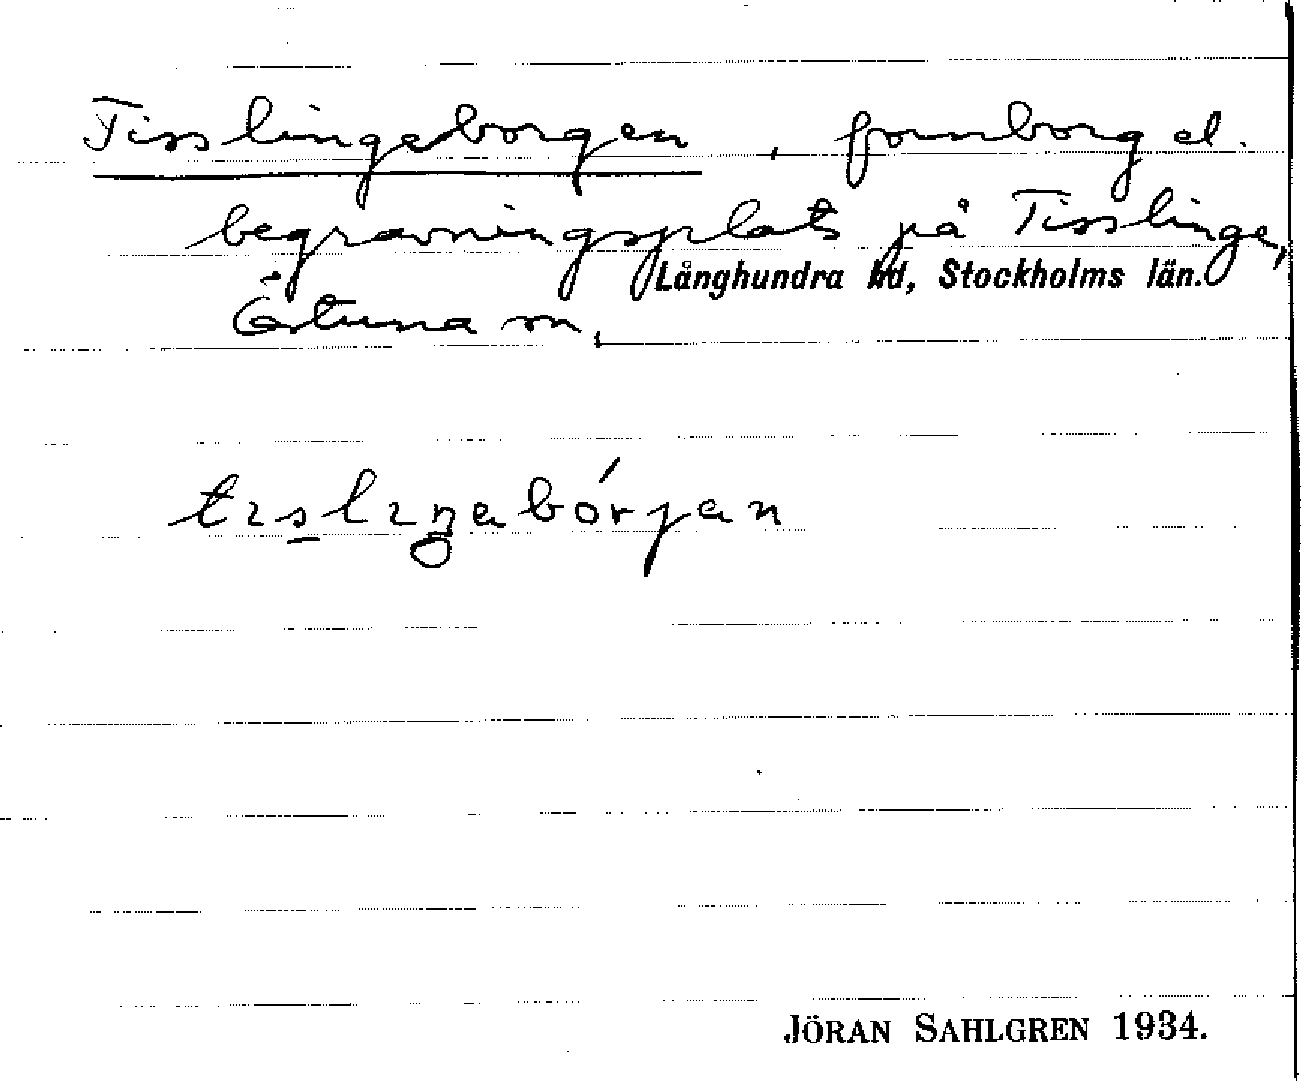 Tisslingeborgen, fornborg el.
begravningsplats på Tisslinge,
Långhundra hd, Stockholms län.
Östuna sn,
tıslıŋabórjan
JÖRAN SAHLGREN 1934.